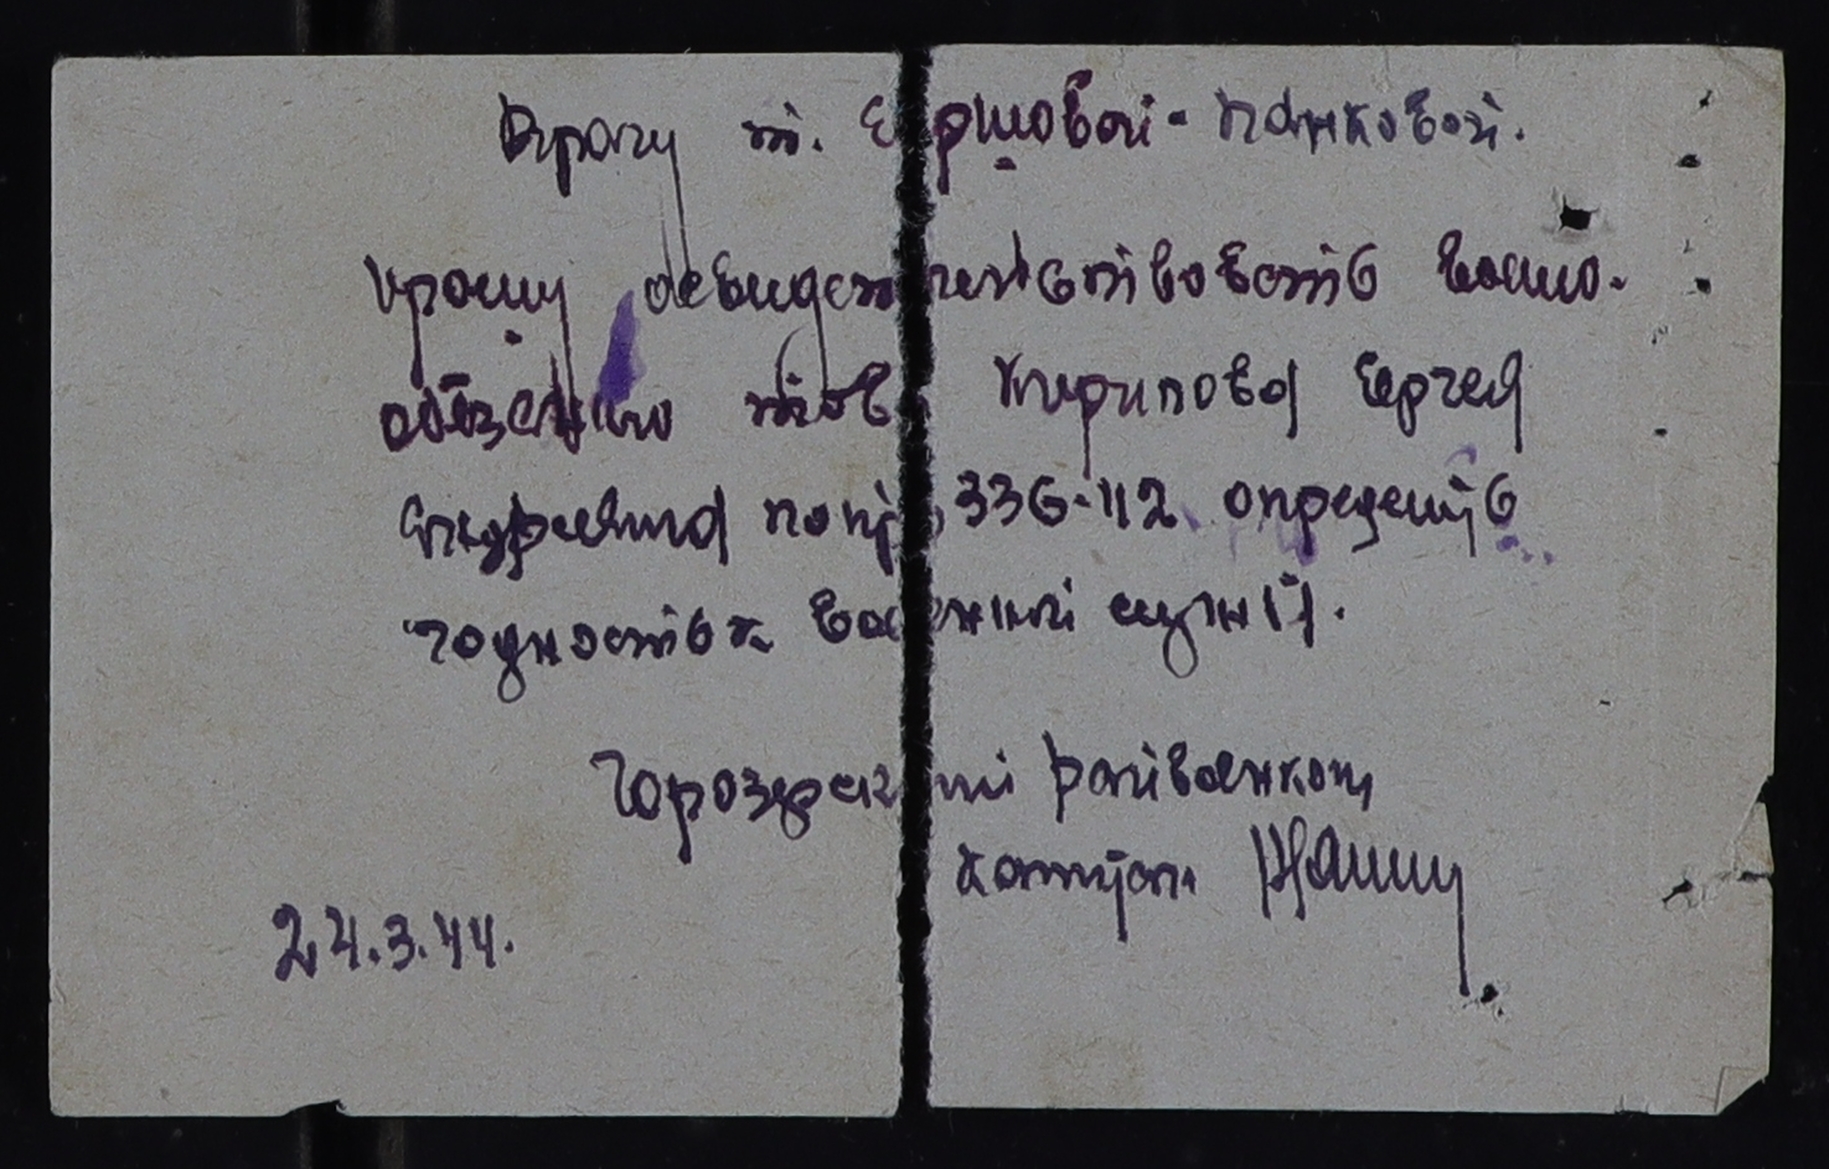 Врачу т. Ершовой-Панковой.
Прошу освидетельствовать военно-
обязанного тов. Кирилова Сергея
Андреевича по пр. 336-42 определить
годность к военной службы.
Городецкий райвоенком
капитан
24.3.44.